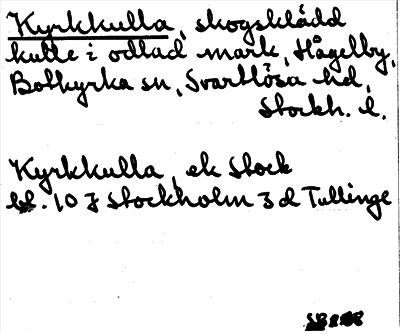 Kyrkkulla, skogsklädd
kulle i odlad mark, Hågelby,
Botkyrka sn, Svartlösa hd,
Stockh. l.
Kyrkkulla, ek Stock
bl. 10 J Stockholm 3 d Tullinge